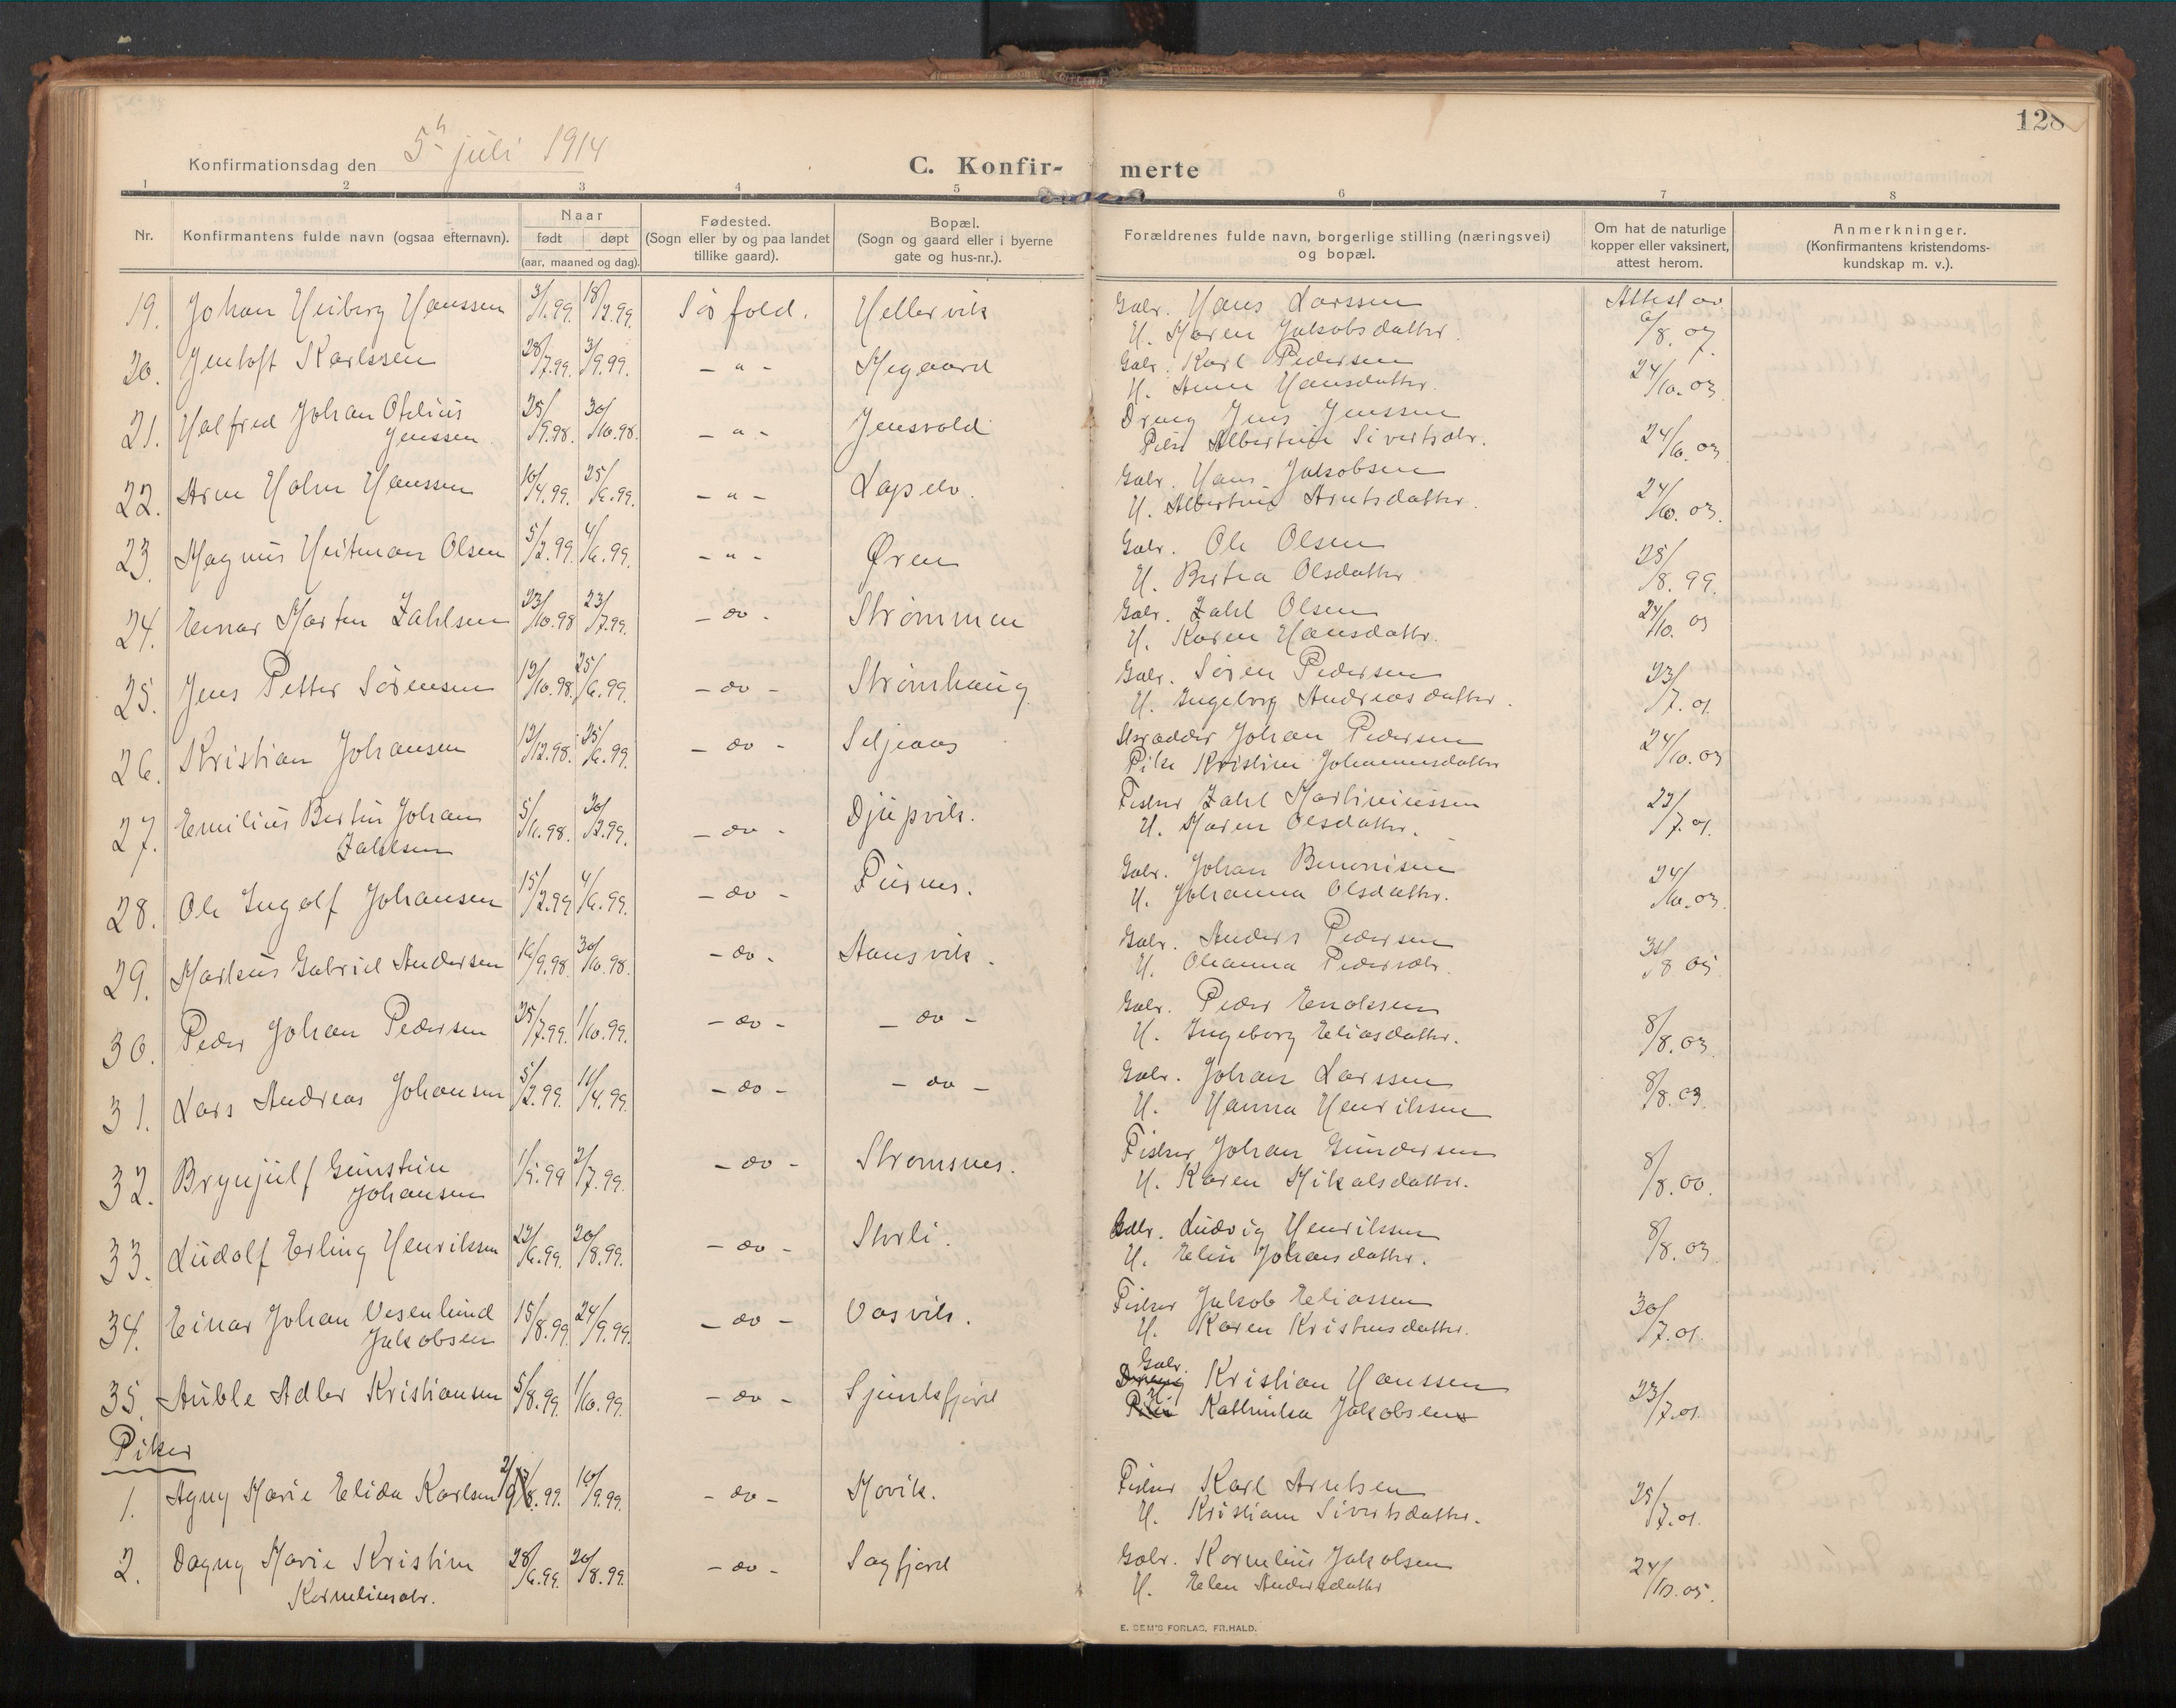 128
Konfirmationsdag den 5 juli 1914
C. Konfir- merte
1 2 3 4 5 6 7 8
Nr.
Konfirmantens fulde navn (ogsaa efternavn).
Naar
født døpt
(aar, maaned og dag).
Fødested.
(Sogn eller by og paa landet
tillike gaard).
Bopæl.
(Sogn og gaard eller i byerne
gate og hus-nr.).
Forældrenes fulde navn, borgerlige stilling (næringsvei)
og bopæl.
Om hat de naturlige
kopper eller vaksinert,
attest herom.
Anmerkninger.
(Konfirmantens kristendoms-
kundskap m. v.).
19. Johan Heiberg Hanssen 3/1.99. 18/2.99. Sørfold. Hellervik Gbr. Hans Larssen Attest av
H. Maren Jakobsdatter 6/8.07.
20. Jentoft Karlssen 28/7.99. 3/9.99. - " - Megaard Gbr. Karl Pedersen
H. Anne Hansdatter. 24/10.03
21. Halfred Johan Otelius 25/9.98. 30/10.98. - " - Jensvold Dreng Jens Jenssen
Jenssen. Pike Albertine Sivertsdtr. 24/10.03
22. Arne Holm Hanssen 10/4.99. 25/6.99. - " - Lapelv. Gbr. Hans Jakobsen
H. Albertine Arntsdatter. 24/10.03.
23. Magnus Heitman Olsen 5/2.99. 4/6.99. - " - Øren Gbr. Ole Olsen
H. Bertea Olsdatter 25/8.99.
24. Einar Martin Zahlsen 23/10.98 23/7.99. - do - Strømmen Gbr. Zahl Olsen
H. Karen Hansdatter. 24/10.03
25. Jens Petter Sørensen 12/10.98. 25/6.99. - do - Strømhaug Gbr. Søren Pedersen
H. Ingeborg Andreasdatter. 23/7.01.
26. Kristian Johansen 12/12.98. 25/6.99. - do - Seljeaas Skrædder Johan Pedersen
Pike Kristine Johannesdatter 24/10.03
27. Emilius Bertin Johan 5/11.98. 30/3.99. - do - Djupvik. Fisker Zahl Martiniussen
Zahlsen H. Maren Olsdatter. 23/7.01.
28. Ole Ingolf Johansen 15/2.99 4/6.99. - do - Furnes. Gbr. Johan Benonisen
H. Johanna Olsdatter. 24/10.03.
29. Markus Gabriel Andersen 16/9.98. 30/10.98. - do - Hansvik. Gbr. Anders Pedersen
H. Oleanna Pedersdtr. 31/8 05
30. Peder Johan Pedersen 25/7.99. 1/10.99. - do - - do - Gbr. Peder Enokssen
H. Ingeborg Eliasdatter. 8/8.03.
31. Lars Andreas Johansen 5/2.99. 11/4.99. - do - - do - Gbr. Johan Larssen
H. Hanna Henrikssen 8/8.03.
32. Brynjulf Gunstein 1/5.99 2/7.99. - do - Strømsnes. Fisker Johan Gundersen
Johansen H. Karen Mikalsdatter. 8/8.00.
33. Ludolf Erling Henrikssen 12/6.99. 20/8.99. - do - Storli. Gbr. Ludvig Henrikssen
H. Elise Johansdatter. 8/8.03
34. Einar Johan Vesenlund 15/8.99. 24/9.99. - do - Vasvik. Fisker Jakob Eliassen
Jakobsen H. Karen Kristensdatter. 30/7.01.
35. Auble Adler Kristiansen 5/8.99. 1/10.99. - do - Sjunkfjord Gbr. Dreng Kristian Hanssen
H. Pike Kathinka Jakobsen 23/7.01.
Piker
1. Agny Marie Elida Karlsen 2/8.99. 10/9.99. - do - Movik. Fisker Karl Arntsen
H. Kristiane Sivertsdatter. 25/7.01.
2. Dagny Marie Kristine 28/6.99. 20/8.99. - do - Sagfjord Gbr. Kornelius Jakobsen
Korneliusdtr. H. Elen Andersdatter 24/10.05.
E. SEM'S FORLAG, FR.HALD.